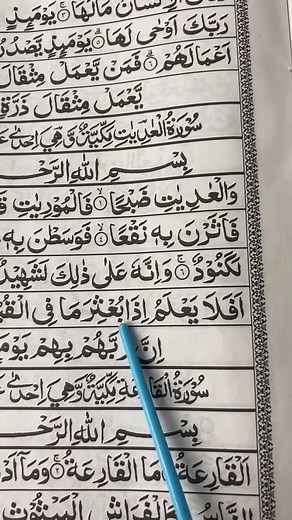 مَا لَهَا ۚ يَوْمَىِٕذٍ
رَبَّكَ اَوْحٰى لَهَا ۞ يَوْمَىِٕذٍ يَّصْدُرُ
اَعْمَالَهُمْ ۞ فَمَنْ يَّعْمَلْ مِثْقَالَ
يَّعْمَلْ مِثْقَالَ ذَرَّةٍ
سُوْرَةُ الْعٰدِيٰتِ مَكِّيَّةٌ وَّهِيَ اِحْدٰى
بِسْمِ اللهِ
وَالْعٰدِيٰتِ ضَبْحًا ۞ فَالْمُوْرِيٰتِ
فَاَثَرْنَ بِهٖ نَقْعًا ۞ فَوَسَطْنَ بِهٖ
لَكَنُوْدٌ ۞ وَاِنَّهٗ عَلٰى ذٰلِكَ لَشَهِيْدٌ
اَفَلَا يَعْلَمُ اِذَا بُعْثِرَ مَا فِى
اِنَّ رَبَّهُمْ بِهِمْ
سُوْرَةُ الْقَارِعَةِ مَكِّيَّةٌ وَّهِيَ اِحْدٰى
بِسْمِ اللهِ
اَلْقَارِعَةُ ۞ مَا الْقَارِعَةُ ۞ وَمَآ